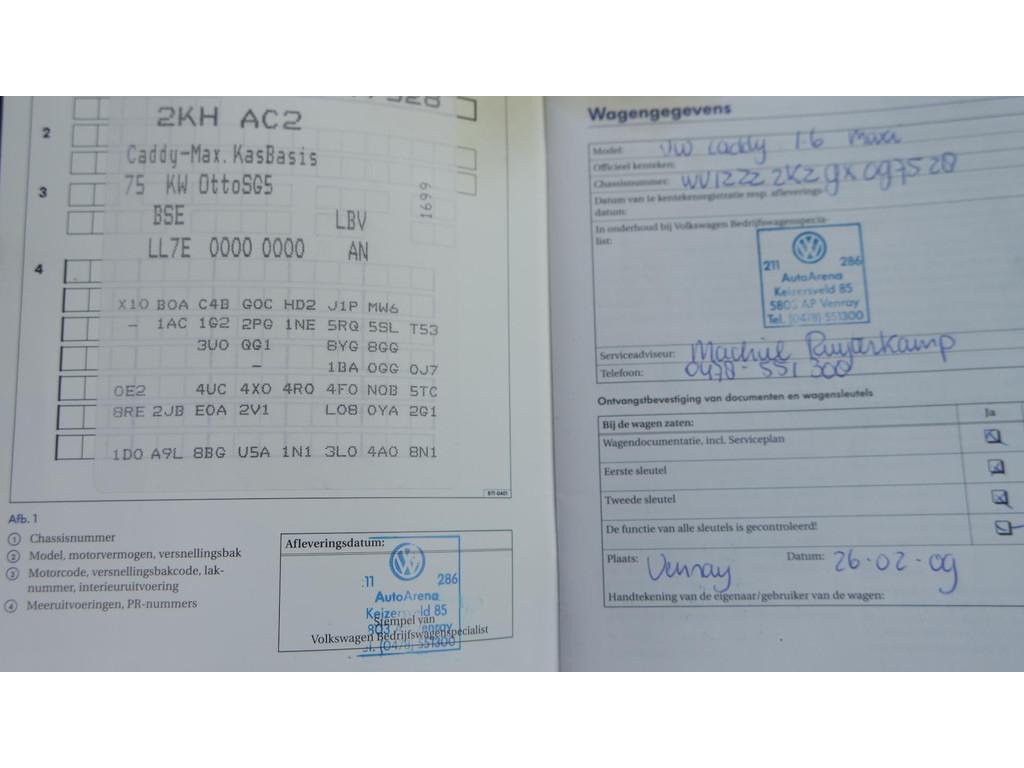 7528
2
2KH AC2
Caddy-Max.KasBasis
3
75 KW OttoSG5
1699
BSE LBV
LL7E 0000 0000 AN
4
X10 B0A C4B G0C HD2 J1P MW6
- 1AC 1G2 2PG 1NE 5RQ 5SL T53
3U0 QG1 BYG 8GG
- 1BA 0GG 0J7
0E2 4UC 4X0 4R0 4F0 N0B 5TC
8RE 2JB E0A 2V1 L08 0YA 2G1
1D0 A9L 8BG U5A 1N1 3L0 4A0 8N1
B1T-0401
Afb. 1
1 Chassisnummer
2 Model, motorvermogen, versnellingsbak
3 Motorcode, versnellingsbakcode, lak-
nummer, interieuruitvoering
4 Meeruitvoeringen, PR-nummers
Afleveringsdatum:
11 286
AutoArena
Keizersveld 85
Stempel van
Volkswagen Bedrijfswagenspecialist
Tel. (0478) 551300
Wagengegevens
Model: VW Caddy 1.6 Maxi
Officieel kenteken:
Chassisnummer: WV1ZZZ2KZ9X097528
Datum van 1e kentekenregistratie resp. afleverings-
datum:
In onderhoud bij Volkswagen Bedrijfswagenspecia-
list:
211 286
AutoArena
Keizersveld 85
5803 AP Venray
Tel. (0478) 551300
Serviceadviseur: Machiel Ruyterkamp
Telefoon: 0478-551300
Ontvangstbevestiging van documenten en wagensleutels
Bij de wagen zaten: Ja
Wagendocumentatie, incl. Serviceplan
Eerste sleutel
Tweede sleutel
De functie van alle sleutels is gecontroleerd!
Plaats: Venray Datum: 26-02-09
Handtekening van de eigenaar/gebruiker van de wagen: